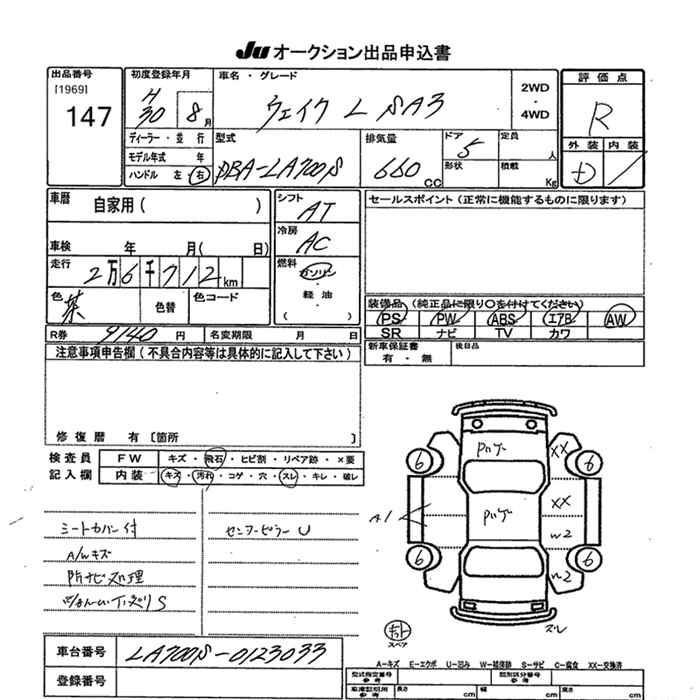 Ju オークション出品申込書
出品番号
[1969]
147
初度登録年月
H
30 8 月
車名・グレード
ウェイク L SA3
2WD
・
4WD
評価点
R
外装 内装
D
ディーラー・並行
モデル年式 年
ハンドル 左・右
型式
DBA-LA700S
排気量
660 CC
ドア
5
形状
定員
人
積載
Kg
車歴 自家用( )
車検 年 月( 日)
走行 2万6千712km
色 茶 色替 色コード
シフト
AT
冷房
AC
燃料
ガソリン
・
軽油
( )
セールスポイント(正常に機能するものに限ります)
装備品(純正品に限り○を付けてください)
PS PW ABS エアB AW
SR ナビ TV カワ
新車保証書
有・無
後日品
R券 9140 円 名変期限 月 日
注意事項申告欄(不具合内容等は具体的に記入して下さい)
修復歴 有〔箇所
検査員
記入欄
FW キズ・飛石・ヒビ割・リペア跡・×要
内装 キズ・汚れ・コゲ・穴・スレ・キレ・破レ
シートカバー付
A/Wキズ
センターピラー U
6 6
XX
XX
A1
W2
W2
6 6
スペア
ズレ
A-キズ E-エクボ U-凹み W-補修跡 S-サビ C-腐食 XX-交換済
車台番号 LA700S-0123033
登録番号
型式指定番号
参考
類別区分番号
参考
長さ cm
幅 cm
高さ cm